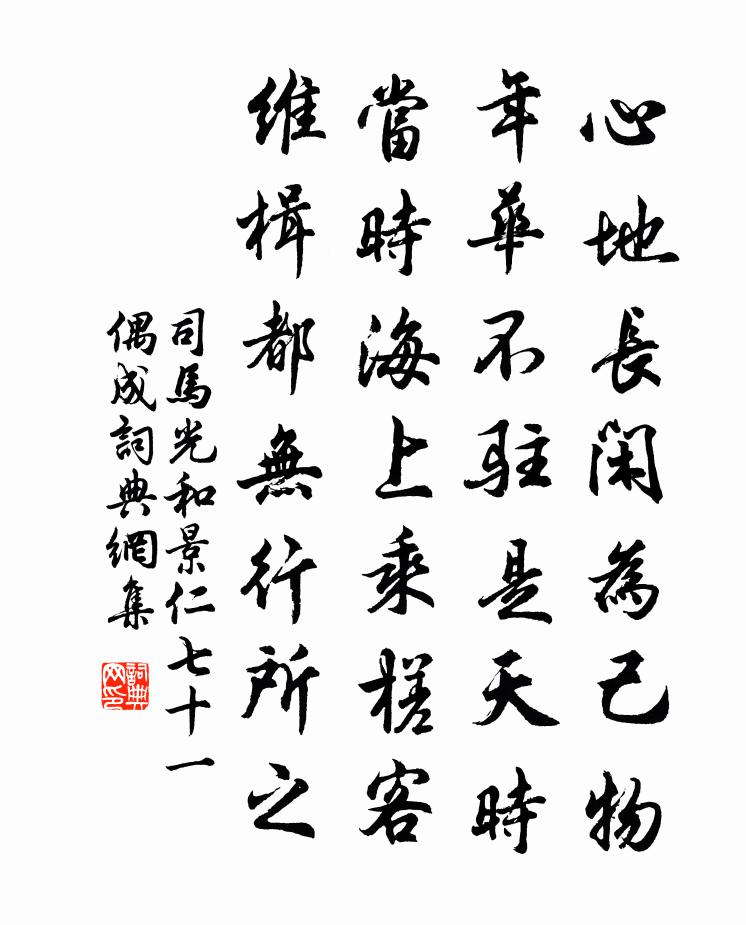 心地長閑為己物
年華不駐是天時
當時海上乘槎客
維楫都無行所之
司馬光和景仁七十一
偶成詞典網集
詞典網印